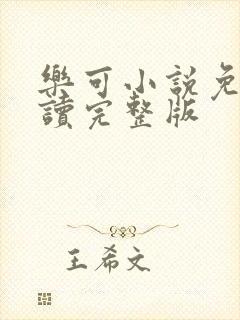 樂可小說免
讀完整版
王希文